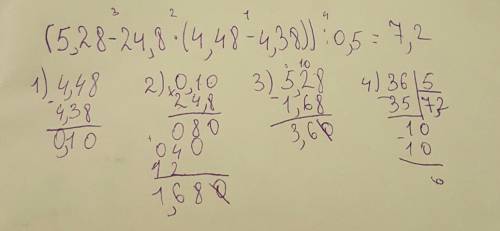 (5,28-24,8·(4,48-4,38)):0,5=7,2
3 2 1 4
1) 4,48
-4,38
0,10
2) 0,10
×24,8
080
040
12
1,680
3) 5,28
10
-1,68
3,60
4) 36 5
-35 7,2
10
-10
0